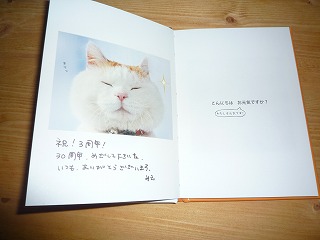 祝！3周年！
30周年、めざして下さいね。
いつも、ありがとうございます。
こんにちは　お元気ですか？